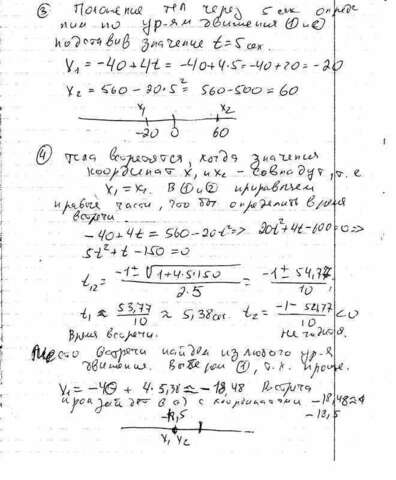 ③ Положение тел через 5 сек опреде
лим по ур-ям движения ① и ②
подставив значение t=5 сек.
X₁ = -40+4t = -40+4·5=-40+20=-20
X₂ = 560-20·5² = 560-500=60
X₁ X₂
-20 0 60
④ Тела встретятся, когда значения
координат X₁ и X₂ - совпадут, т.е
X₁=X₂. В ① и ② приравняем
правые части, что бы определить время
встречи.
-40+4t=560-20t² => 20t²+4t-100=0 =>
5t²+t-150=0
t₁,₂ = -1±√1+4·5·150 / 2·5 = -1±54,77 / 10,
t₁ ≈ 53,77/10 ≈ 5,38 сек. t₂ = -1-54,77/10 <0
Время встречи. Не годится.
Место встречи найдем из любого ур-я
движения. Выберем ①, т.к. проще.
X₁ = -40 + 4·5,38 ≈ -18,48 Встреча
произойдет в с координатами -18,48≈
-18,5
-18,5
X₁ X₂